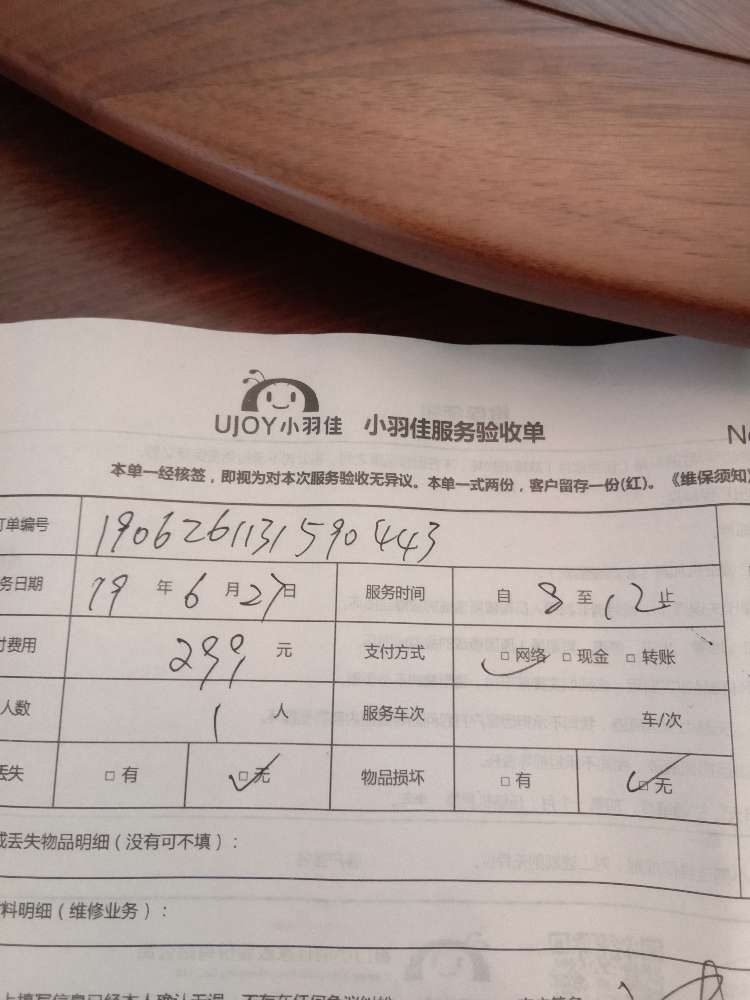 UJOY小羽佳 小羽佳服务验收单
本单一经核签，即视为对本次服务验收无异议。本单一式两份，客户留存一份(红)。《维保须知》
订单编号 1906261131590443
务日期 19 年 6 月 27 日 服务时间 自 8 至 12 止
付费用 299 元 支付方式 □ 网络 □ 现金 □ 转账
人数 1 人 服务车次 车/次
丢失 □ 有 □ 无 物品损坏 □ 有 □ 无
或丢失物品明细（没有可不填）：
材料明细（维修业务）：